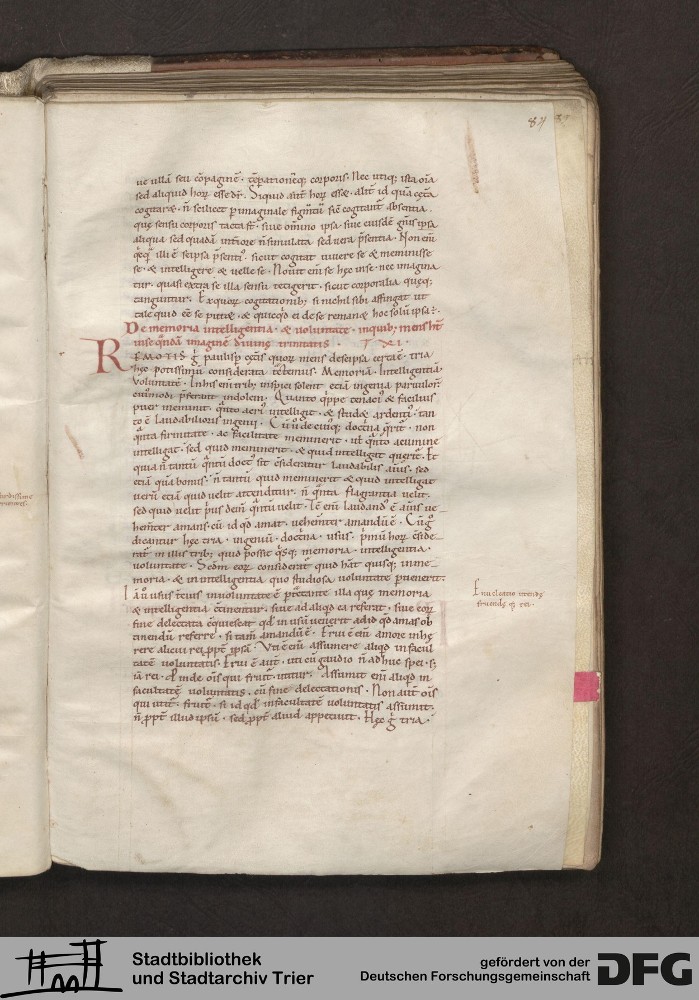 84
ue ullā seu cōpaginē · tēpationēq; corporis · Nec utiq; ista oīa
sed aliquid horę esse dr̄ · Siquid aūt horę essæ · alit̄ id quā cęta
cogitaræ · n̄ scilicet p imaginale figmtū sic̄ cogitant̄ absentia ·
quę sensu corporis tacta st̄ · siue om̄ino ipsa · siue eiusdē gn̄is ipsa
aliqua sed quadā int̄iore n̄ simulata sed uera p̄sentia · Non em̄
illi ē seipsa p̄sentī · sicut cogitat uiuere se & meminisse
se · & intelligere & uelle se · Nouit em̄ se hęc in se · nec imagina
tur · quasi extra se illa sensu tetigerit · sicut corporalia quęq;
tanguntur · Ex quoꝝ cogitationib; si nichil sibi affingat ut
tale quid eē se putæ · & quicq̇d ei de se remanæ hoc solū ipsa ÷
De memoria intelligentia · & uoluntate · in quib; mens ht̄
in se q̄ndā imaginē diuinę trinitatis · XI ·
REMOTIS ḡ paulisp cęt̄is quoꝝ mens de seipsa certa ē · tria
hęc potissimū considerata tētemus · Memoriā · Intelligentiā ·
Voluntatē · In his em̄ trib; inspici solent etiā ingenia paruuloꝝ
cuimodi p̄ferant indolem · Quanto q̇ppe tenaci' & facilius
puer meminit · q̄nto acri' intelligit · & studæ ardenti' · tan
to ē laudabilioris ingenii · Cū ū de cuiusq; doctrina q̄rit̄ · non
q̄nta firmitate · ac facilitate meminerit · ut̄ q̄nto acumine
intelligat · sed quid meminerit · & quid intelligat querit̄ · Et
quia n̄ tantū q̄ntū doct' sit c̄siderat̄ laudabilis aīus · sed
etiā quā bonus · n̄ tantū quid meminerit & quid intelligat
uerū etiā quid uelit attenditur · n̄ q̄nta flagrantia uelit ·
sed quid uelit p̄us dein̄ q̄ntū uelit · Tc̄ em̄ laudand' ē aīus ue
hem̄ter amans · cū id qd̄ amat · uehemt̄er amandū ē · Cū ḡ
dicantur hęc tria · ingeniū · doctina · usus · p̄mū horꝝ c̄side
rat̄ in illis trib; quid possit q̇sq; memoria · intelligentia ·
uoluntate · Scd̄m eorꝝ considerat̄ quid habeat quisq; in me
moria · & in intelligentia quo studiosa uoluntate puenerit ·
Iā ū usus t̄cius in uoluntate ē ptractante illa quę memoria
& intelligentia c̄tinentur · siue ad aliqd ea referat · siue eorꝝ
fine delectata c̄quiescat · Vti ē em̄ assumere aliqd in facul
tatē uoluntatis · Frui ē aūt · uti cū gaudio n̄ adhuc spei · s;
iā rei · Assumit em̄ aliqd in
facultatē uoluntatis · cū fine delectationis · Non aūt oīs
qui utit̄ · fruit̄ · si id qd̄ in facultatē uoluntatis assumit ·
n̄ ppt̄ illud ipsū · sed ppt̄ aliud appetiuit · Hęc ḡ tria ·
Stadtbibliothek
und Stadtarchiv Trier
gefördert von der
Deutschen Forschungsgemeinschaft
DFG